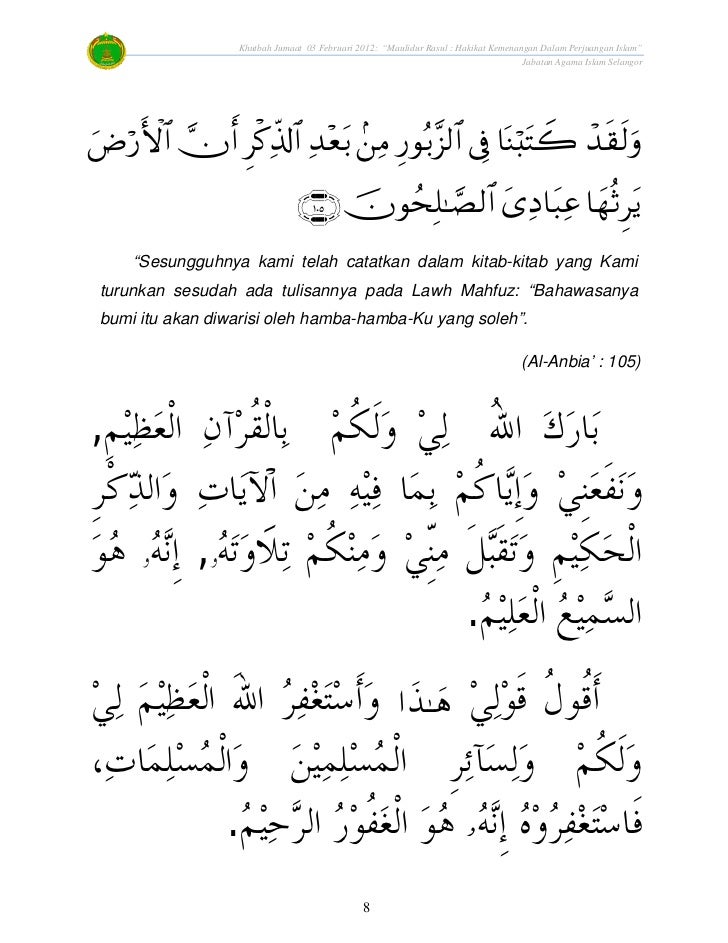 Khutbah Jumaat 03 Februari 2012: “Maulidur Rasul : Hakikat Kemenangan Dalam Perjuangan Islam”
Jabatan Agama Islam Selangor
وَلَقَدۡ ڪَتَبۡنَا فِى ٱلزَّبُورِ مِنۢ بَعۡدِ ٱلذِّكۡرِ أَنَّ ٱلۡأَرۡضَ
يَرِثُهَا عِبَادِىَ ٱلصَّـٰلِحُونَ ١٠٥
“Sesungguhnya kami telah catatkan dalam kitab-kitab yang Kami
turunkan sesudah ada tulisannya pada Lawh Mahfuz: “Bahawasanya
bumi itu akan diwarisi oleh hamba-hamba-Ku yang soleh”.
(Al-Anbia’ : 105)
بَارَكَ اللهُ لِيْ وَلَكُمْ بِالْقُرْآنِ الْعَظِيْمِ,
وَنَفَعَنِيْ وَإِيَّاكُمْ بِمَا فِيْهِ مِنَ ٱلْآيَاتِ وَالذِّكْرِ
الْحَكِيْمِ وَتَقَبَّلَ مِنِّيْ وَمِنْكُمْ تِلاَوَتَهُ, إِنَّهُ هُوَ
السَّمِيْعُ الْعَلِيْمُ.
أَقُولُ قَوْلِيْ هَـٰذَا وَأَسْتَغْفِرُ اللهَ الْعَظِيْمَ لِيْ
وَلَكُمْ وَلِسَآئِرِ الْمُسْلِمِيْنَ وَالْمُسْلِمَاتِ،
فَاسْتَغْفِرُوْهُ إِنَّهُ هُوَ الْغَفُوْرُ الرَّحِيْمُ.
8